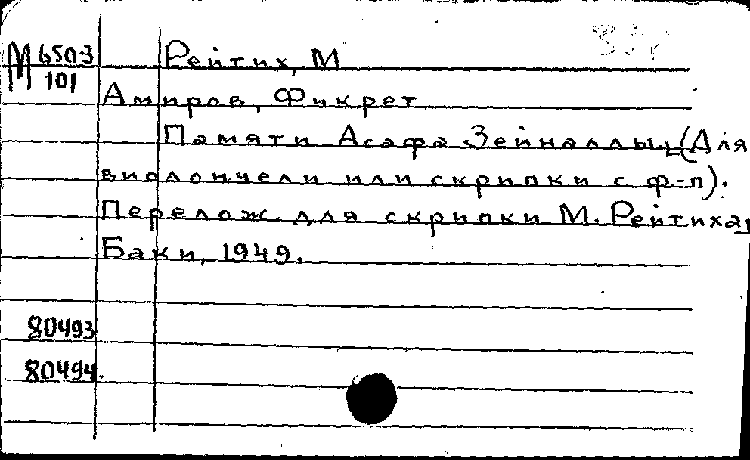 М 6503 Рейтих, М
101
Амиров, Фикрет
Памяти Асафа Зейналлы, (Для
виолончели или скрипки с ф-п).
Перелож. для скрипки М. Рейтиха,
Баки, 1949.
80493
80494.